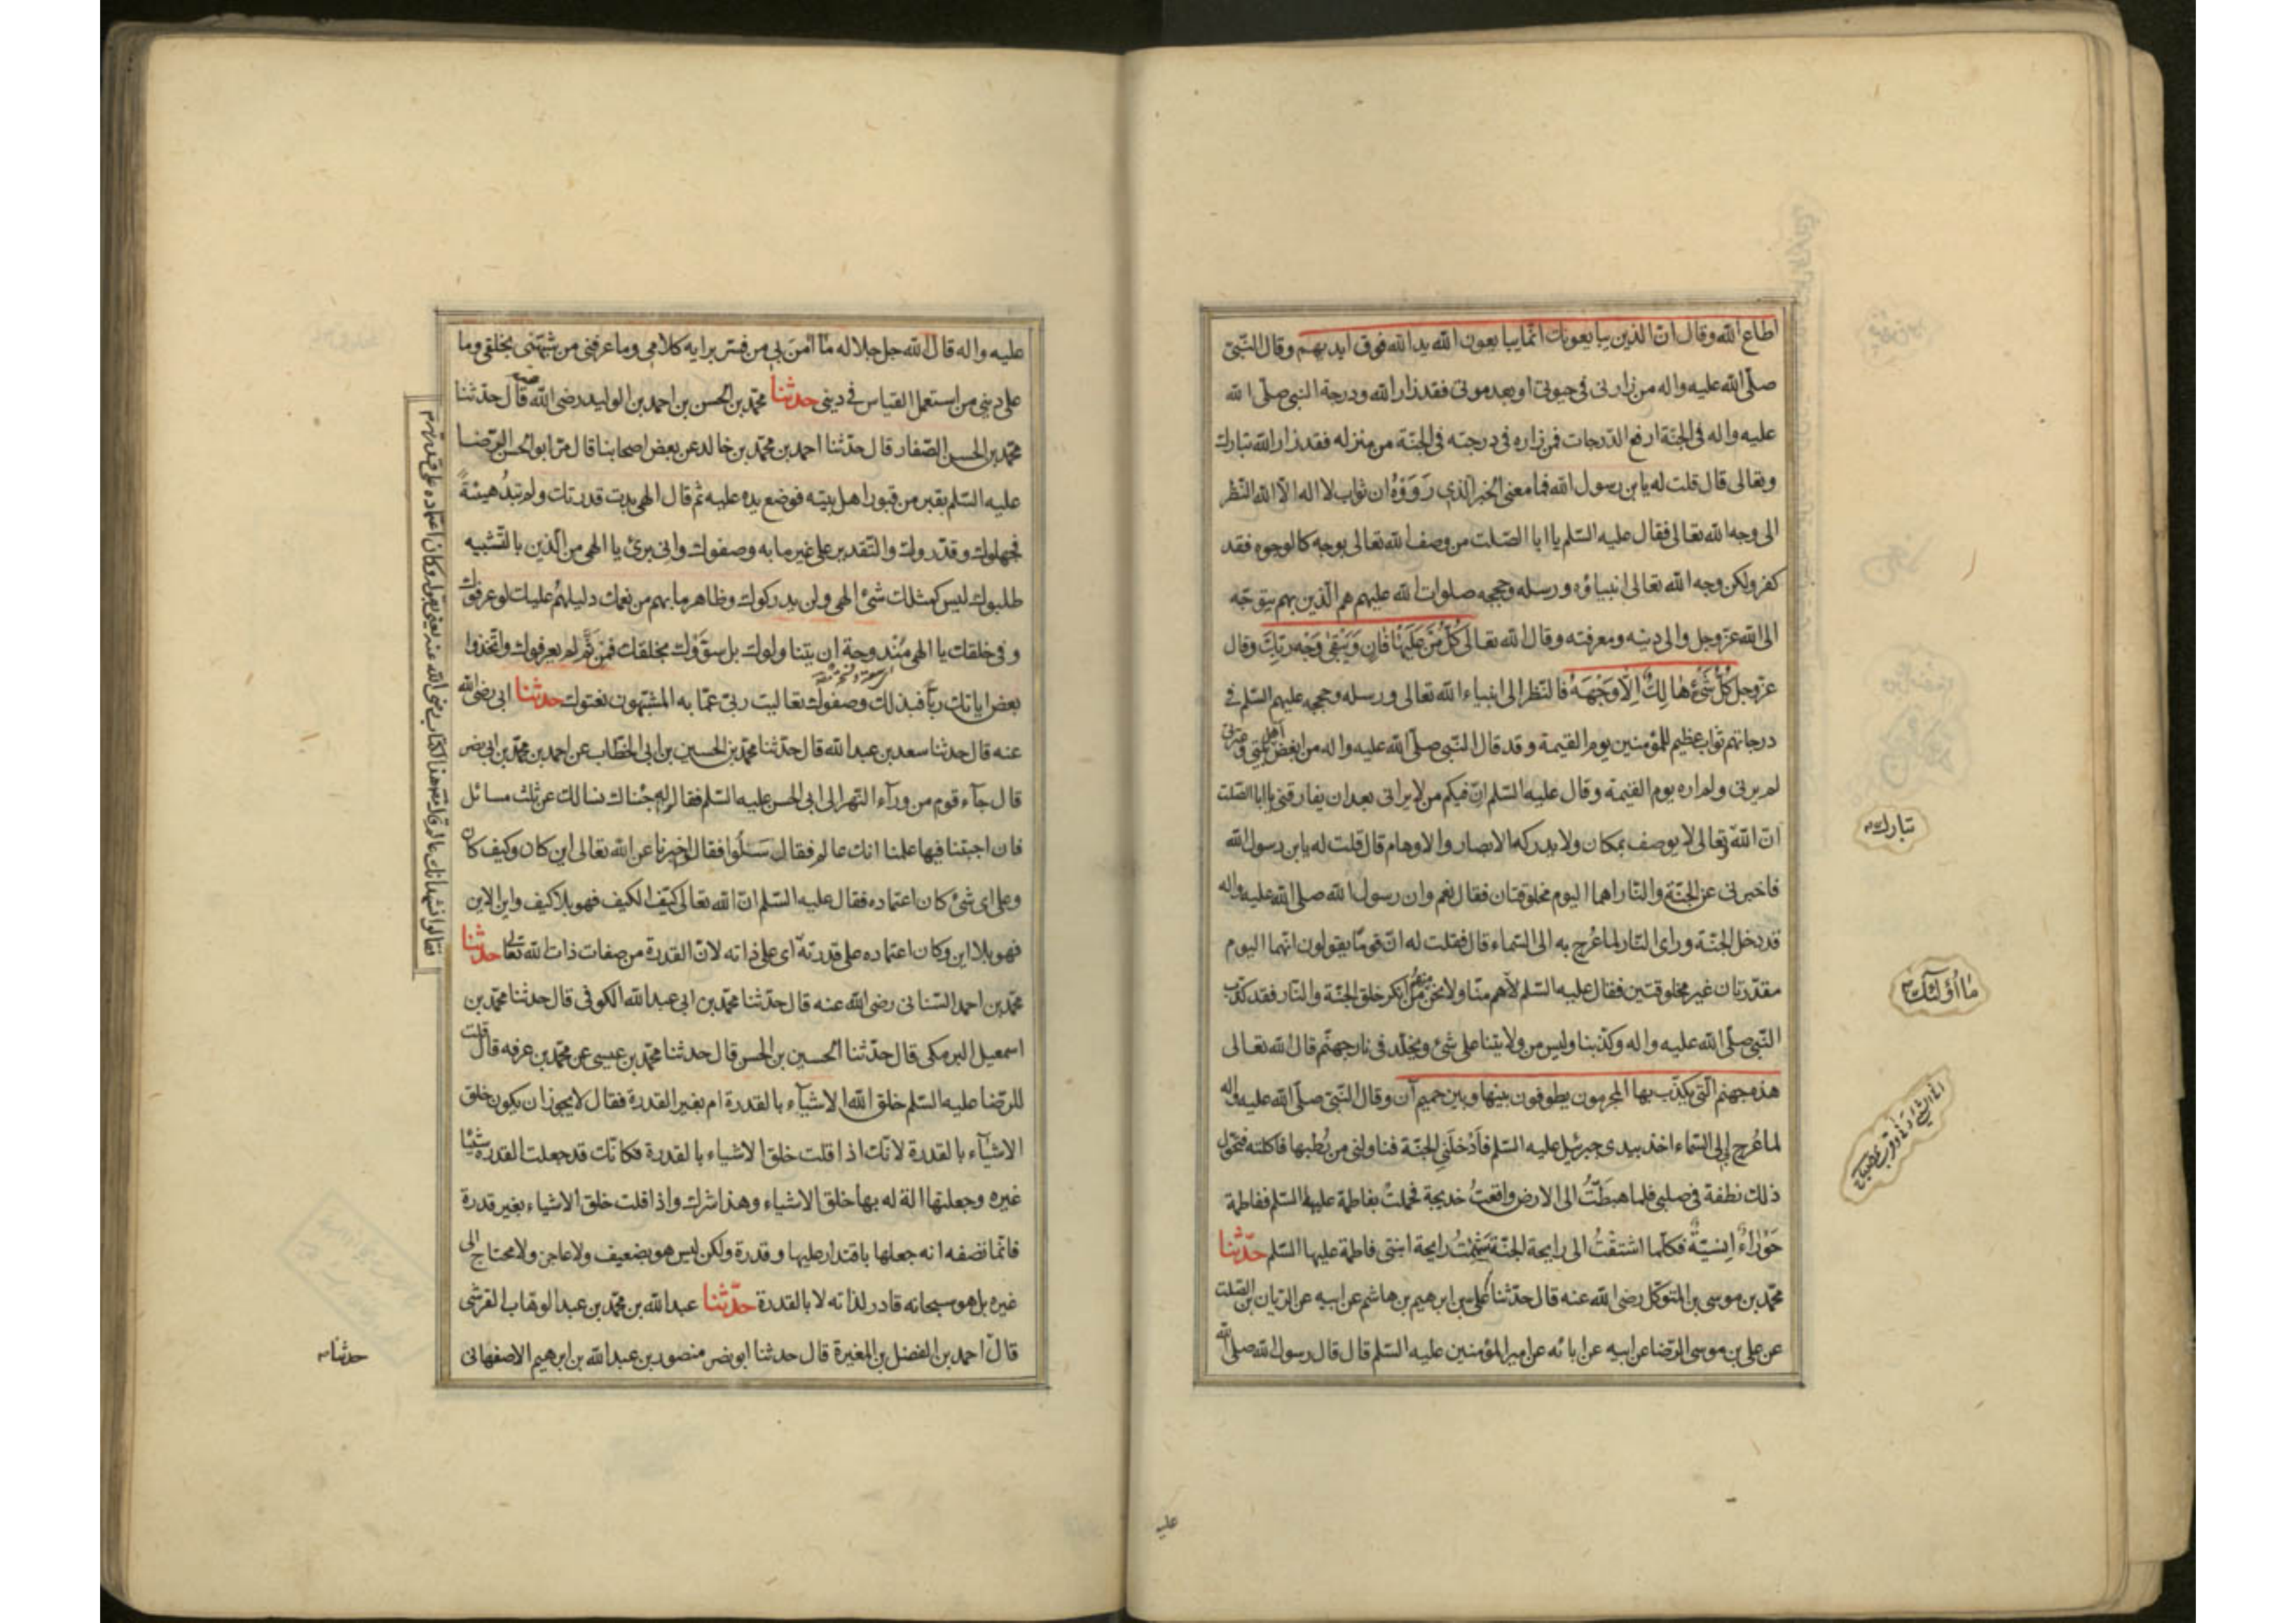 اطاع الله وقال ان الذين يبايعونك انما يبايعون الله يد الله فوق ايديهم وقال النبي
صلى الله عليه واله من زارني في حيوتي او بعد موتي فقد زار الله ودرجة النبي صلى الله
عليه واله في الجنة ارفع الدرجات فمن زاره في درجته في الجنة من منزله فقد زار الله تبارك
وتعالى قال قلت له يابن رسول الله فما معنى الخبر الذي رووه ان ثواب لا اله الا الله النظر
الى وجه الله تعالى فقال عليه السلم يا ابا الصلت من وصف الله تعالى بوجه كالوجوه فقد
كفر ولكن وجه الله تعالى انبياؤه ورسله وحججه صلوات الله عليهم هم الذين بهم يتوجه
الى الله عز وجل والى دينه ومعرفته وقال الله تعالى كل من عليها فان ويبقى وجه ربك وقال
عز وجل كل شيء هالك الا وجهه فالنظر الى انبياء الله تعالى ورسله وحججه عليهم السلم في
درجاتهم ثواب عظيم للمؤمنين يوم القيمة وقد قال النبي صلى الله عليه واله من ابغض اهل بيتي وعترتي
لم يرني ولم اره يوم القيمة وقال عليه السلم ان فيكم من لا يراني بعد ان يفارقني يا ابا الصلت
ان الله تعالى لا يوصف بمكان ولا يدركه الابصار والاوهام قال قلت له يابن رسول الله
فاخبرني عن الجنة والنار اهما اليوم مخلوقتان فقال نعم وان رسول الله صلى الله عليه واله
قد دخل الجنة وراى النار لما عرج به الى السماء قال فقلت له ان قوما يقولون انهما اليوم
مقدرتان غير مخلوقتين فقال عليه السلم لا هم منا ولا نحن منهم من انكر خلق الجنة والنار فقد كذب
النبي صلى الله عليه واله وكذبنا وليس من ولايتنا على شيء ويخلد في نار جهنم قال الله تعالى
هذه جهنم التي يكذب بها المجرمون يطوفون بينها وبين حميم آن وقال النبي صلى الله عليه واله
لما عرج بي الى السماء اخذ بيدي جبرئيل عليه السلم فادخلني الجنة فناولني من رطبها فاكلته فتحول
ذلك نطفة في صلبي فلما هبطت الى الارض واقعت خديجة فحملت بفاطمة عليها السلم ففاطمة
حوراء انسية فكلما اشتقت الى رايحة الجنة شممت رايحة ابنتي فاطمة عليها السلم حدثنا
محمد بن موسى بن المتوكل رضي الله عنه قال حدثنا علي بن ابرهيم بن هاشم عن ابيه عن الريان بن الصلت
عن علي بن موسى الرضا عن ابيه عن ابائه عن امير المؤمنين عليه السلم قال قال رسول الله صلى الله
تبارك
ما اولئك
عليه
عليه واله قال الله جل جلاله ما امن بي من فسر برايه كلامي وما عرفني من شبهني بخلقي وما
على ديني من استعمل القياس في ديني حدثنا محمد بن الحسن بن احمد بن الوليد رضي الله عنه قال حدثنا
محمد بن الحسن الصفار قال حدثنا احمد بن محمد بن خالد عن بعض اصحابنا قال مر ابو الحسن الرضا
عليه السلم بقبر من قبور اهل بيته فوضع يده عليه ثم قال الهي بدت قدرتك ولم تبد هيئة
فجهلوك وقدروك والتقدير على غير ما به وصفوك واني بريء يا الهي من الذين بالتشبيه
طلبوك ليس كمثلك شيء الهي ولن يدركوك وظاهر ما بهم من نعمك دليلهم عليك لو عرفوك
وفي خلقك يا الهي مندوحة ان يتناولوك بل سووك بخلقك فمن ثم لم يعرفوك واتخذوا
بعض اياتك ربا فبذلك وصفوك تعاليت ربي عما به المشبهون نعتوك حدثنا ابي رضي الله
عنه قال حدثنا سعد بن عبد الله قال حدثنا محمد بن الحسين بن ابي الخطاب عن احمد بن محمد بن ابي نصر
قال جآء قوم من ورآء النهر الى ابي الحسن عليه السلم فقالوا له جئناك نسالك عن ثلث مسائل
فان اجبتنا فيها علمنا انك عالم فقال سلوا فقالوا اخبرنا عن الله تعالى اين كان وكيف كان
وعلى اي شيء كان اعتماده فقال عليه السلم ان الله تعالى كيف الكيف فهو بلا كيف واين الاين
فهو بلا اين وكان اعتماده على قدرته اي على ذاته لان القدرة من صفات ذات الله تعالى حدثنا
محمد بن احمد السناني رضي الله عنه قال حدثنا محمد بن ابي عبد الله الكوفي قال حدثنا محمد بن
اسمعيل البرمكي قال حدثنا الحسين بن الحسن قال حدثنا محمد بن عيسى عن محمد بن عرفه قال قلت
للرضا عليه السلم خلق الله الاشيآء بالقدرة ام بغير القدرة فقال لا يجوز ان يكون خلق
الاشيآء بالقدرة لانك اذا قلت خلق الاشياء بالقدرة فكانك قد جعلت القدرة شيئا
غيره وجعلتها الة له بها خلق الاشياء وهذا شرك واذا قلت خلق الاشياء بغير قدرة
فانما تصفه انه جعلها باقتدار عليها وقدرة ولكن ليس هو بضعيف ولا عاجز ولا محتاج الى
غيره بل هو سبحانه قادر لذاته لا بالقدرة حدثنا عبد الله بن محمد بن عبد الوهاب القرشي
قال احمد بن الفضل بن المغيرة قال حدثنا ابو نصر منصور بن عبد الله بن ابرهيم الاصفهاني
فقالوا نشهد انك عالم قال مصنف هذا الكتاب رضي الله عنه يعني بقوله وكان اعتماده على قدرته
حدثنا